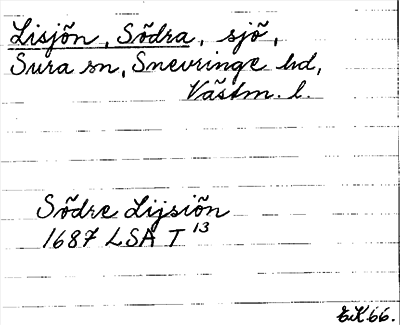 Lisjön, Södra, sjö,
Sura sn, Snevringe hd,
Västm. l.
Södre Lijsiön
1687 LSA T 13
EK66.